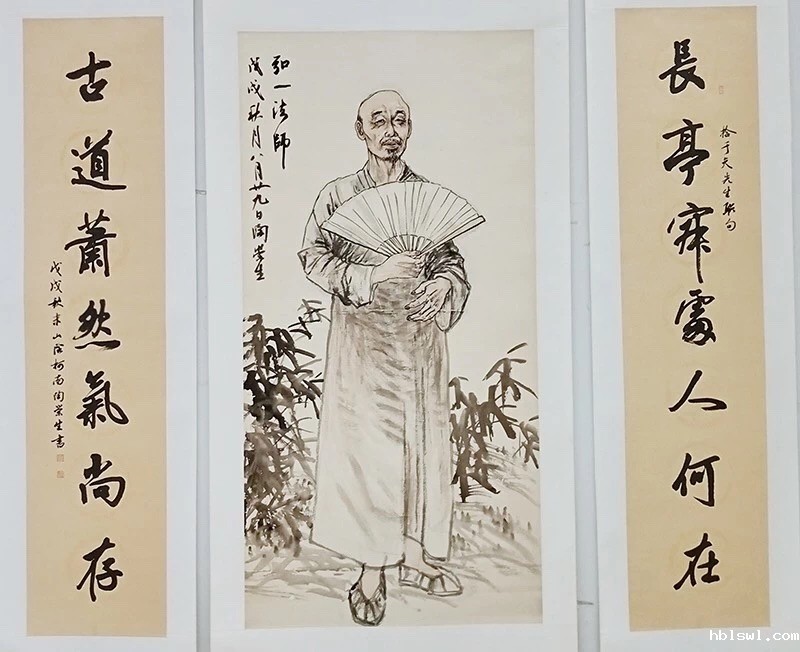 長亭寂處人何在
拾于天先生聯句
弘一法師
戊戌秋月八月廿九日陶崇生
古道蕭然氣尚存
戊戌秋末山陰柯南陶崇生書
hblswl.com